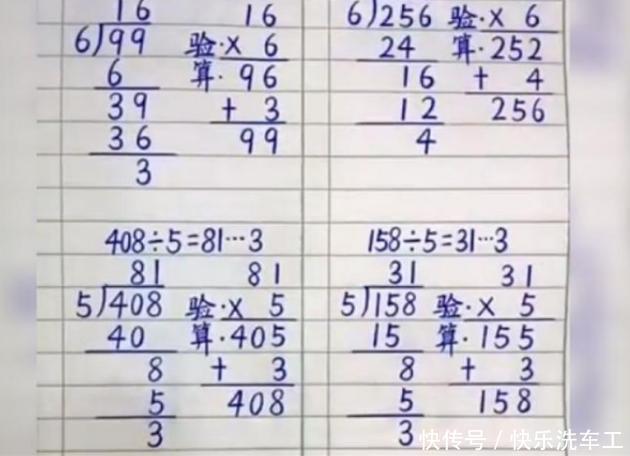 16
6)99
6
39
36
3
16
验:x 6
算:96
+ 3
99
6)256
24
16
12
4
验:x 6
算:252
+ 4
256
408÷5=81…3
81
5)408
40
8
5
3
81
验:x 5
算:405
+ 3
408
158÷5=31…3
31
5)158
15
8
5
3
31
验:x 5
算:155
+ 3
158
快传号/快乐洗车工